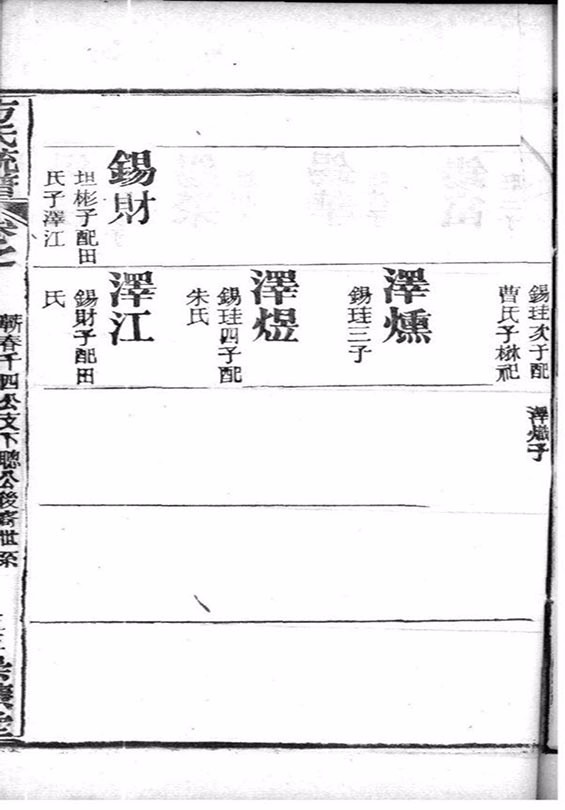 錫珪次子配
曹氏子楙祀
澤熾子
澤燻
錫珪三子
澤煜
錫珪四子配
朱氏
錫財
坦彬子配田
氏子澤江
澤江
錫財子配田
氏
方氏統譜
卷之
蘄春千四公支下聽公後裔世系